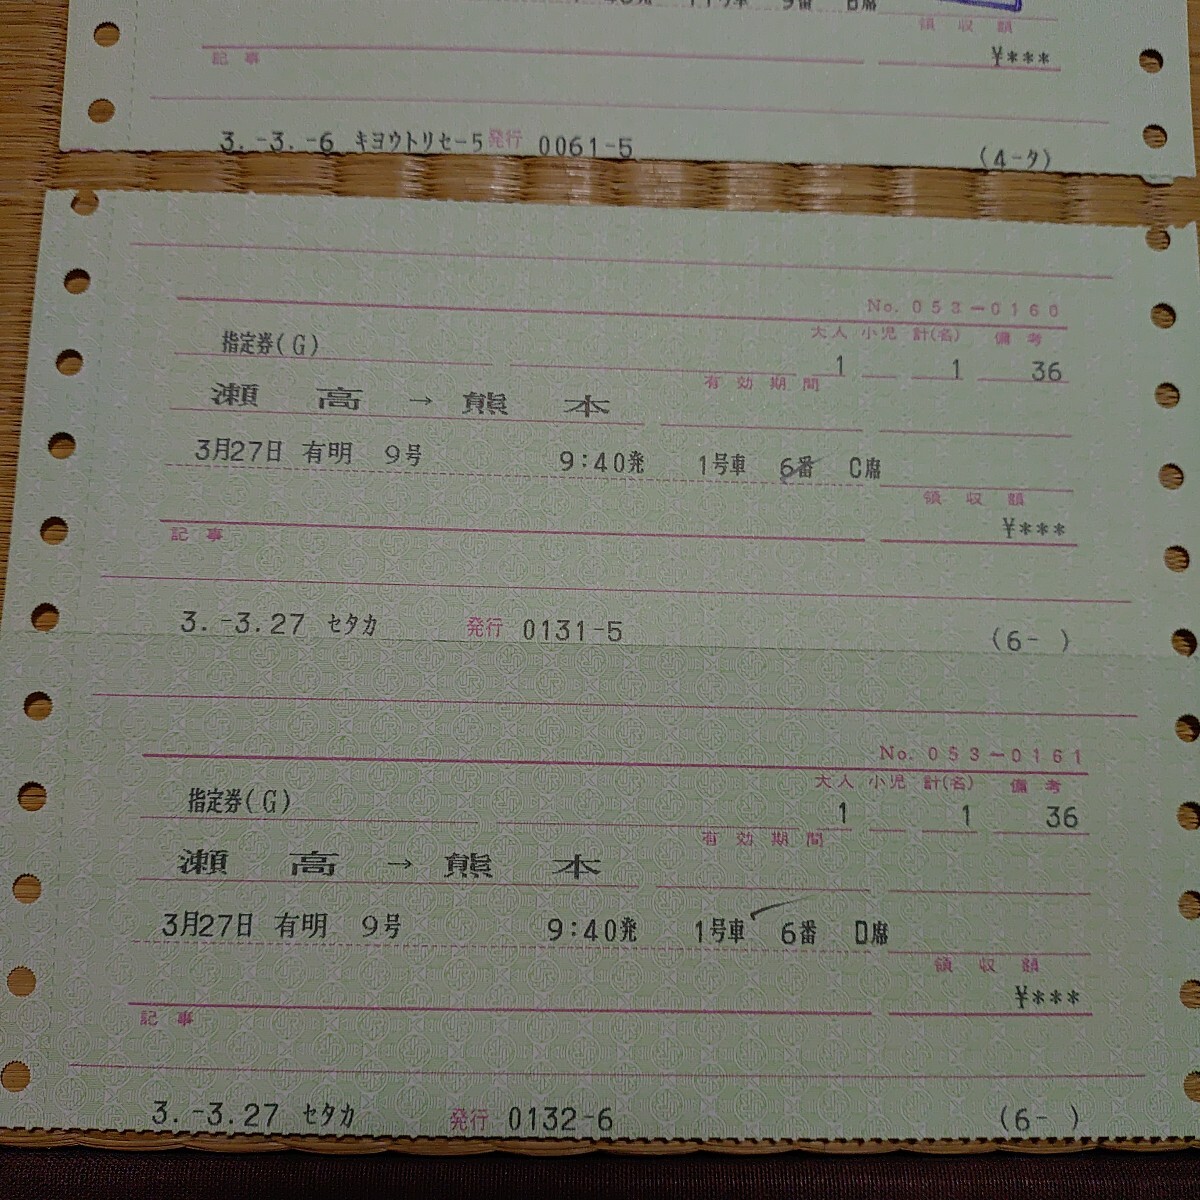 9番 D席
領収額
¥***
記事
3.-3.-6 キヨウトリセ-5発行 0061-5 (4-タ)
No. 053-0160
大人 小児 計(名) 備考
指定券(G) 1 1 36
有効期間
瀬高 → 熊本
3月27日 有明 9号 9:40発 1号車 6番 C席
領収額
¥***
記事
3.-3.27 セタカ 発行 0131-5 (6- )
No. 053-0161
大人 小児 計(名) 備考
指定券(G) 1 1 36
有効期間
瀬高 → 熊本
3月27日 有明 9号 9:40発 1号車 6番 D席
領収額
¥***
記事
3.-3.27 セタカ 発行 0132-6 (6- )